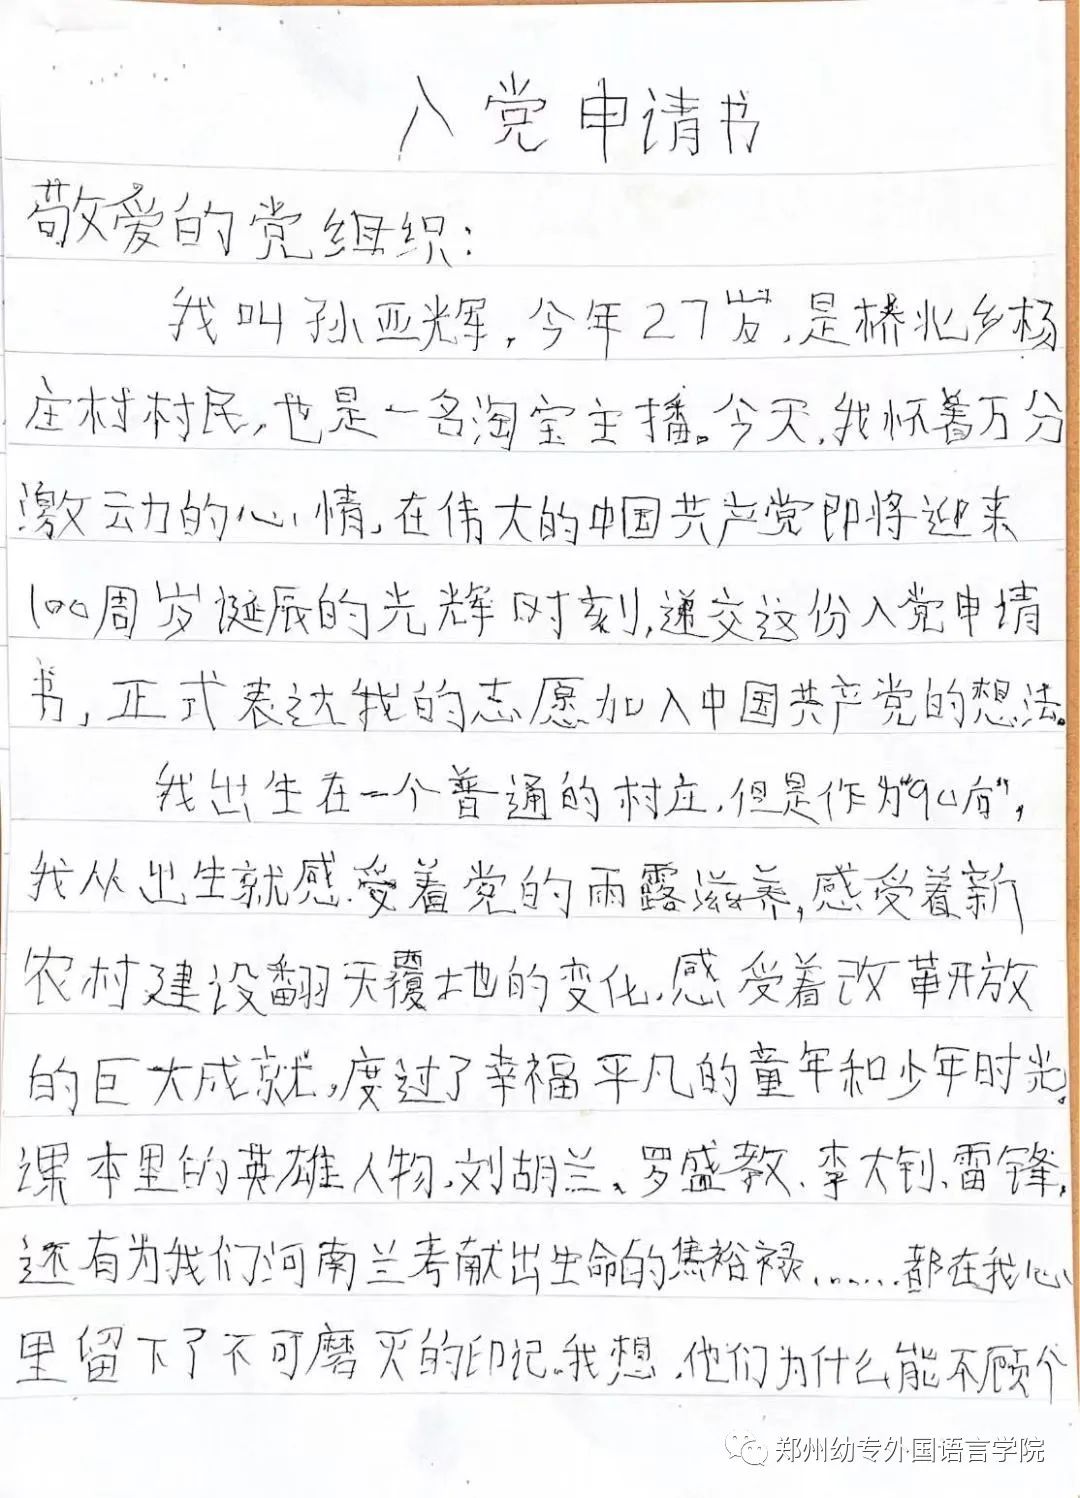 入党申请书
敬爱的党组织:
我叫孙亚辉,今年27岁,是桥北乡杨
庄村村民,也是一名淘宝主播。今天,我怀着万分
激动的心情,在伟大的中国共产党即将迎来
100周岁诞辰的光辉时刻,递交这份入党申请
书,正式表达我的志愿加入中国共产党的想法。
我出生在一个普通的村庄,但是作为“90后”,
我从出生就感受着党的雨露滋养,感受着新
农村建设翻天覆地的变化,感受着改革开放
的巨大成就,度过了幸福平凡的童年和少年时光。
课本里的英雄人物,刘胡兰、罗盛教、李大钊、雷锋,
还有为我们河南兰考献出生命的焦裕禄......都在我心
里留下了不可磨灭的印记。我想,他们为什么能不顾个
郑州幼专外国语言学院